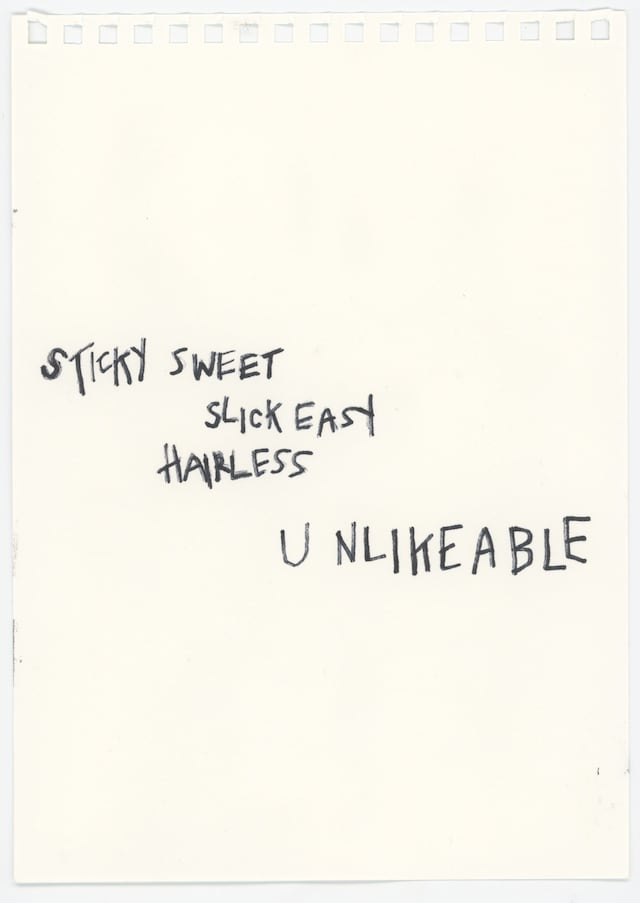 STICKY SWEET
SLICK EASY
HAIRLESS
UNLIKEABLE